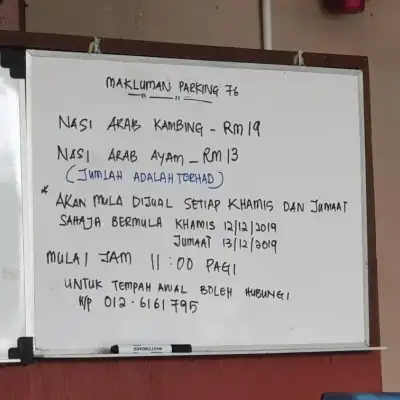 MAKLUMAN PARKING 76
NASI ARAB KAMBING - RM 19
NASI ARAB AYAM - RM 13
(JUMLAH ADALAH TERHAD)
* AKAN MULA DIJUAL SETIAP KHAMIS DAN JUMAAT
SAHAJA BERMULA KHAMIS 12/12/2019
JUMAAT 13/12/2019
MULAI JAM 11:00 PAGI
UNTUK TEMPAH AWAL BOLEH HUBUNGI
H/P 012-6161795